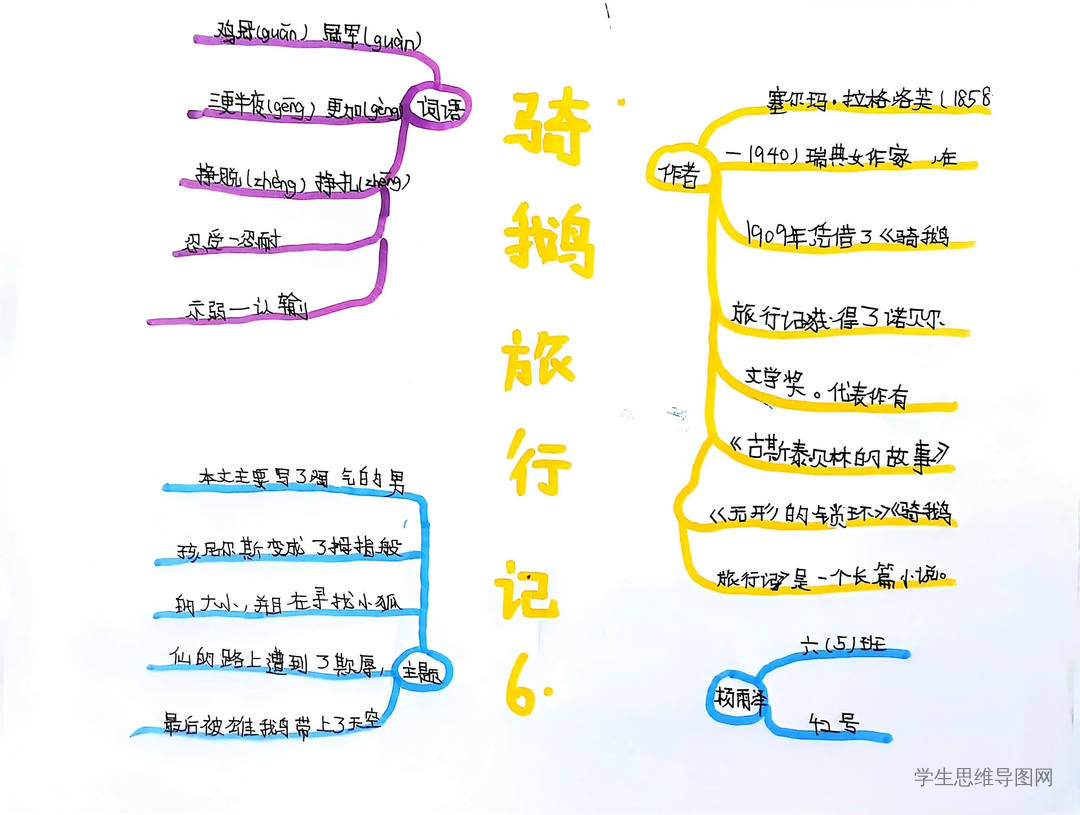 骑鹅旅行记6.
词语
鸡冠(guān) 冠军(guàn)
三更半夜(gēng) 更加(gèng)
挣脱(zhèng) 挣扎(zhēng)
忍受一忍耐
示弱一认输
作者
塞尔玛·拉格洛芙(1858
一1940)瑞典女作家,在
1909年凭借了《骑鹅
旅行记获得了诺贝尔
文学奖。代表作有
《古斯泰贝林的故事》
《无形的锁环》《骑鹅
旅行记》是一个长篇小说。
主题
本文主要写了淘气的男
孩尼尔斯变成了拇指般
的大小,并且在寻找小狐
仙的路上遭到了欺辱,
最后被雄鹅带上了天空
杨雨泽
六(5)班
42号
学生思维导图网